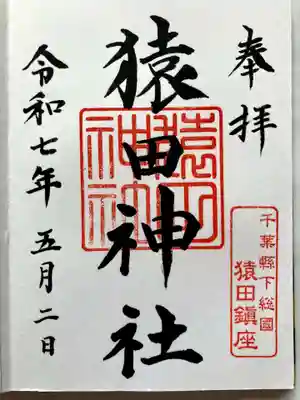 奉拝
猿田神社
猿田神社
千葉縣下総國
猿田鎮座
令和七年 五月二日